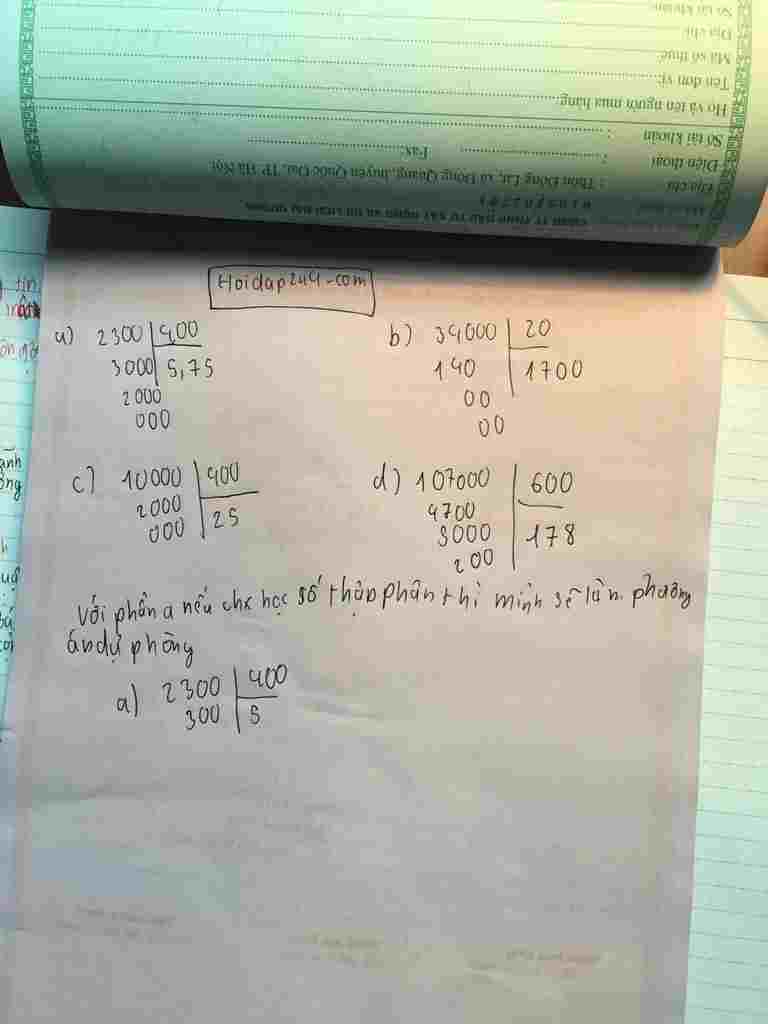 Số tài khoản
Địa chỉ
Mã số thuế
Tên đơn vị:
Họ và tên người mua hàng
Số tài khoản :
Điện thoại : Fax:
Địa chỉ : Thôn Đông Lư, xã Đông Quang, huyện Quốc Oai, TP Hà Nội
Hoidap247.com
a) 2300 400
3000 5,75
2000
000
b) 34000 20
140 1700
00
00
c) 10000 400
2000 25
000
d) 107000 600
4700 178
5000
200
Với phần a nếu chx học số thập phân thì mình sẽ làm phương
án dự phòng
a) 2300 400
300 5